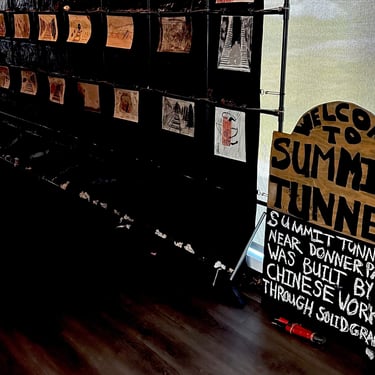 WELCOM
TO
SUMMI
TUNNE
SUMMIT TUNN
NEAR DONNER PA
WAS BUILT BY
CHINESE WORK
THROUGH SOLID GRA